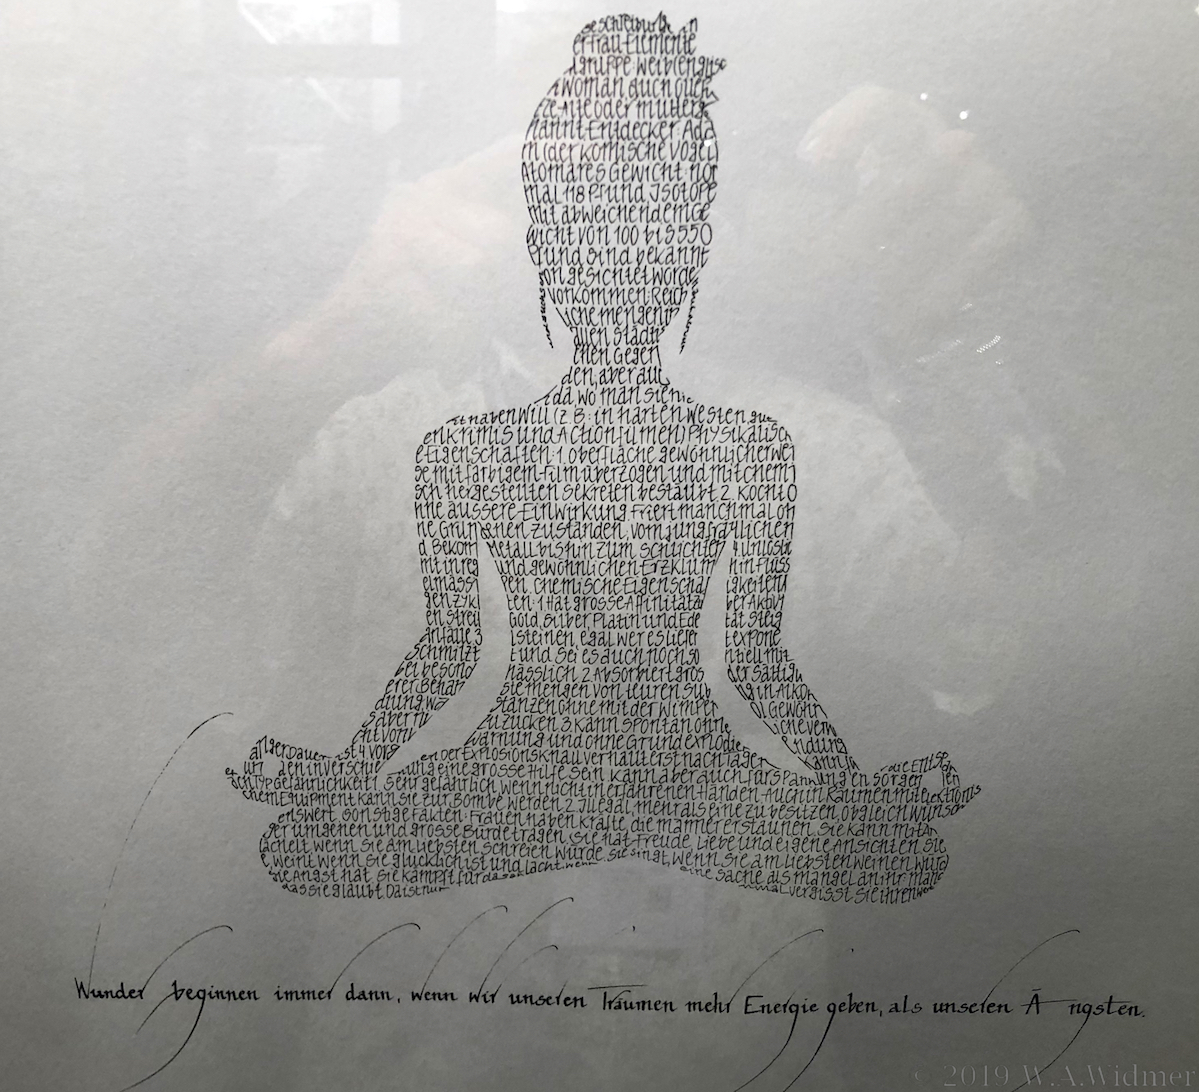 Beschreibung
er Frau Elemente
gruppe: weibl engl
Woman auch
Alte oder mutter
nannt Entdecker: Ada
m (der komische Vogel)
Atomares Gewicht: nor
mal 118 Pfund Isotope
mit abweichendem Ge
wicht von 100 bis 550
Pfund sind bekannt
von gesichtet worde
vorkommen: Reich
liche mengen in
allen Städti
chen Gegen
den, aber auc
da, wo man sie ni
cht haben Will (z.B: in harten Western gut
en Krimis und Actionfilmen) Physikalisch
e Eigenschaften: 1. Oberfläche gewöhnlicherwei
se mit farbigem Film überzogen und mit chemi
sch hergestellten Sekreten bestäubt 2. Kocht O
hne äussere Einwirkung Friert manchmal oh
ne Grun denen zuständen, vom jungfräulichen
d. Bekom Metall bis hin zum schlichter 4. unlöslic
mt in reg und gewöhnlichen Erzklum h in Flüss
elmässi pen. Chemische Eigenschaf igkeiten
gen Zykl ten: 1 Hat grosse Affinität a ber Aktivi
en Streil Gold, Silber Platin und Ede tät steig
Anfälle 3 lsteinen, egal wer es liefer t expone
Schmilzt t und sei es auch noch so ntiell mit
bei besond hässlich 2. Absorbiert gros der Sättigu
erer Behan sse mengen von teuren Sub ng in Alkoh
dlung wä stanzen ohne mit der Wimper ol Gewöhn
zu zucken. 3. Kann spontan ohne liche verw
nt vorü Warnung und ohne Grund explodie endung
langer Dauer ist 4. vors en Der Explosionsknall verhallt erst nach lager kann fü
ung eine grosse Hilfe sein kann aber auch für Spannungen sorgen
den Typ Gefährlichkeit: Sehr gefährlich wenn nicht in erfahrenen Händen. Auch in Räumen mit elektronis
chem Equipment kann sie zur Bombe werden 2. Illegal, mehr als eine zu besitzen, obgleich wünsc
enswert. Sonstige Fakten: Frauen haben Kräfte, die Männer erstaunen. Sie kann mit Är
ger umgehen und grosse Bürde tragen. Sie hat Freude, Liebe und eigene Ansichten. Sie
lächelt wenn sie am liebsten schreien würde. Sie singt, wenn sie am liebsten weinen würd
e, weint wenn sie glücklich ist und lacht, wenn
sie Angst hat. Sie kämpft für das eine Sache als mangel an ihr man
das sie glaubt. Da ist nur nmal vergisst sie ihren wer
Wunder beginnen immer dann, wenn wir unseren Träumen mehr Energie geben, als unseren Ängsten.
© 2019 W.A.Widmer